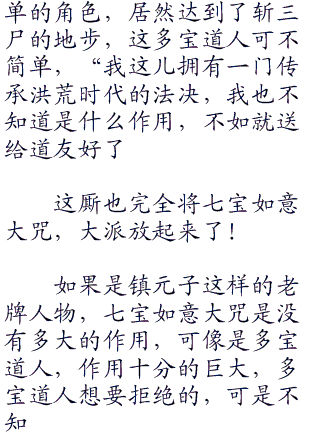 单的角色，居然达到了斩三
尸的地步，这多宝道人可不
简单，“我这儿拥有一门传
承洪荒时代的法决，我也不
知道是什么作用，不如就送
给道友好了
这厮也完全将七宝如意
大咒，大派放起来了！
如果是镇元子这样的老
牌人物，七宝如意大咒是没
有多大的作用，可像是多宝
道人，作用十分的巨大，多
宝道人想要拒绝的，可是不
知